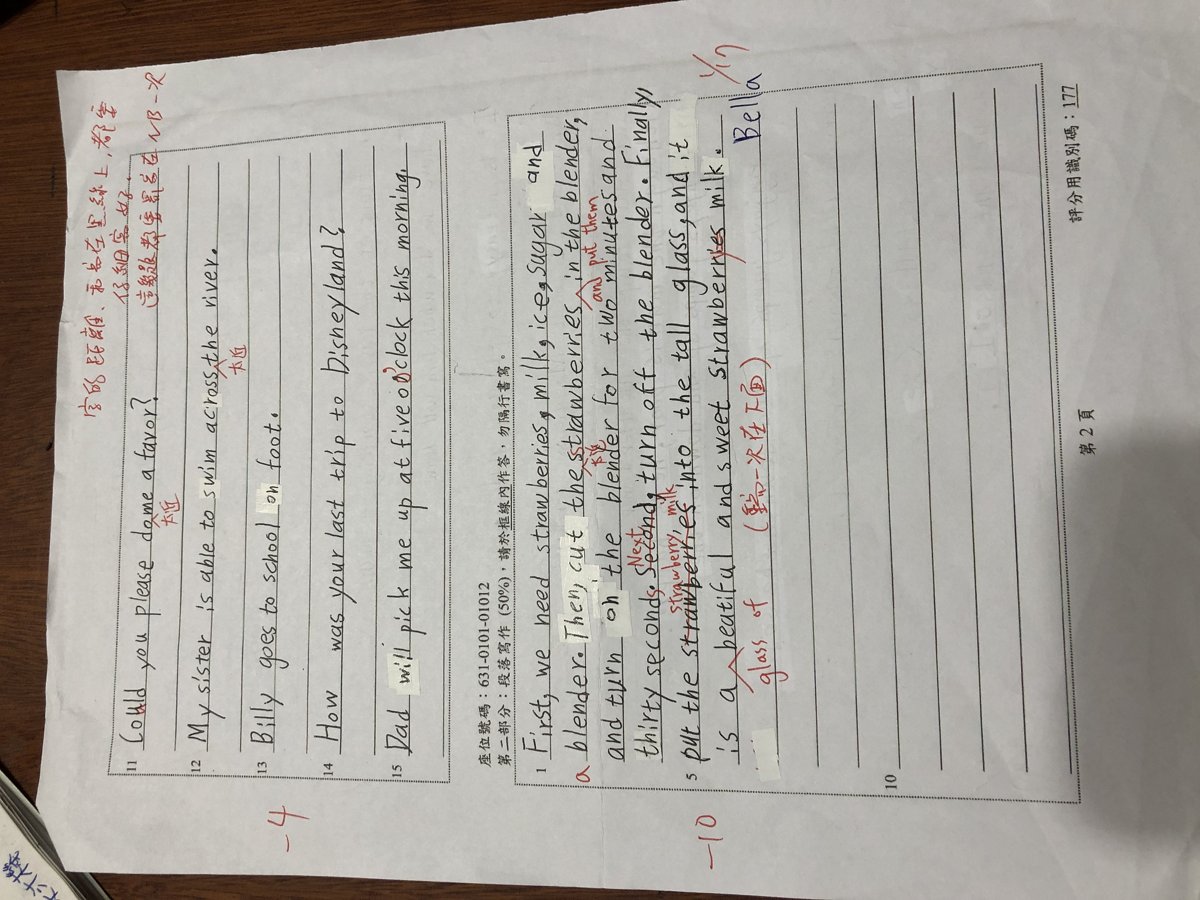 字的距離、寫在黑線上，都要
仔細寫好.
這幾題都要寫在 NB 一次
11 Could you please dome a favor?
太近
12 My sister is able to swim across the river.
太近
13 Billy goes to school on foot.
-4
14 How was your last trip to Disneyland?
15 Dad will pick me up at five o'clock this morning.
座位號碼：631-0101-01012
第二部分：段落寫作 (50%)，請於框線內作答，勿隔行書寫。
1 First, we need strawberries, milk, ice, sugar and
a blender. Then, cut the strawberries in the blender,
太近 and put them
and turn on the blender for two minutes and
Next
thirty seconds. Second, turn off the blender. Finally,
strawberry milk
5 put the strawberries into the tall glass, and it
-10
is a beatiful and sweet strawberries milk.
glass of
Bella 1/17
10
第 2 頁
評分用識別碼：177